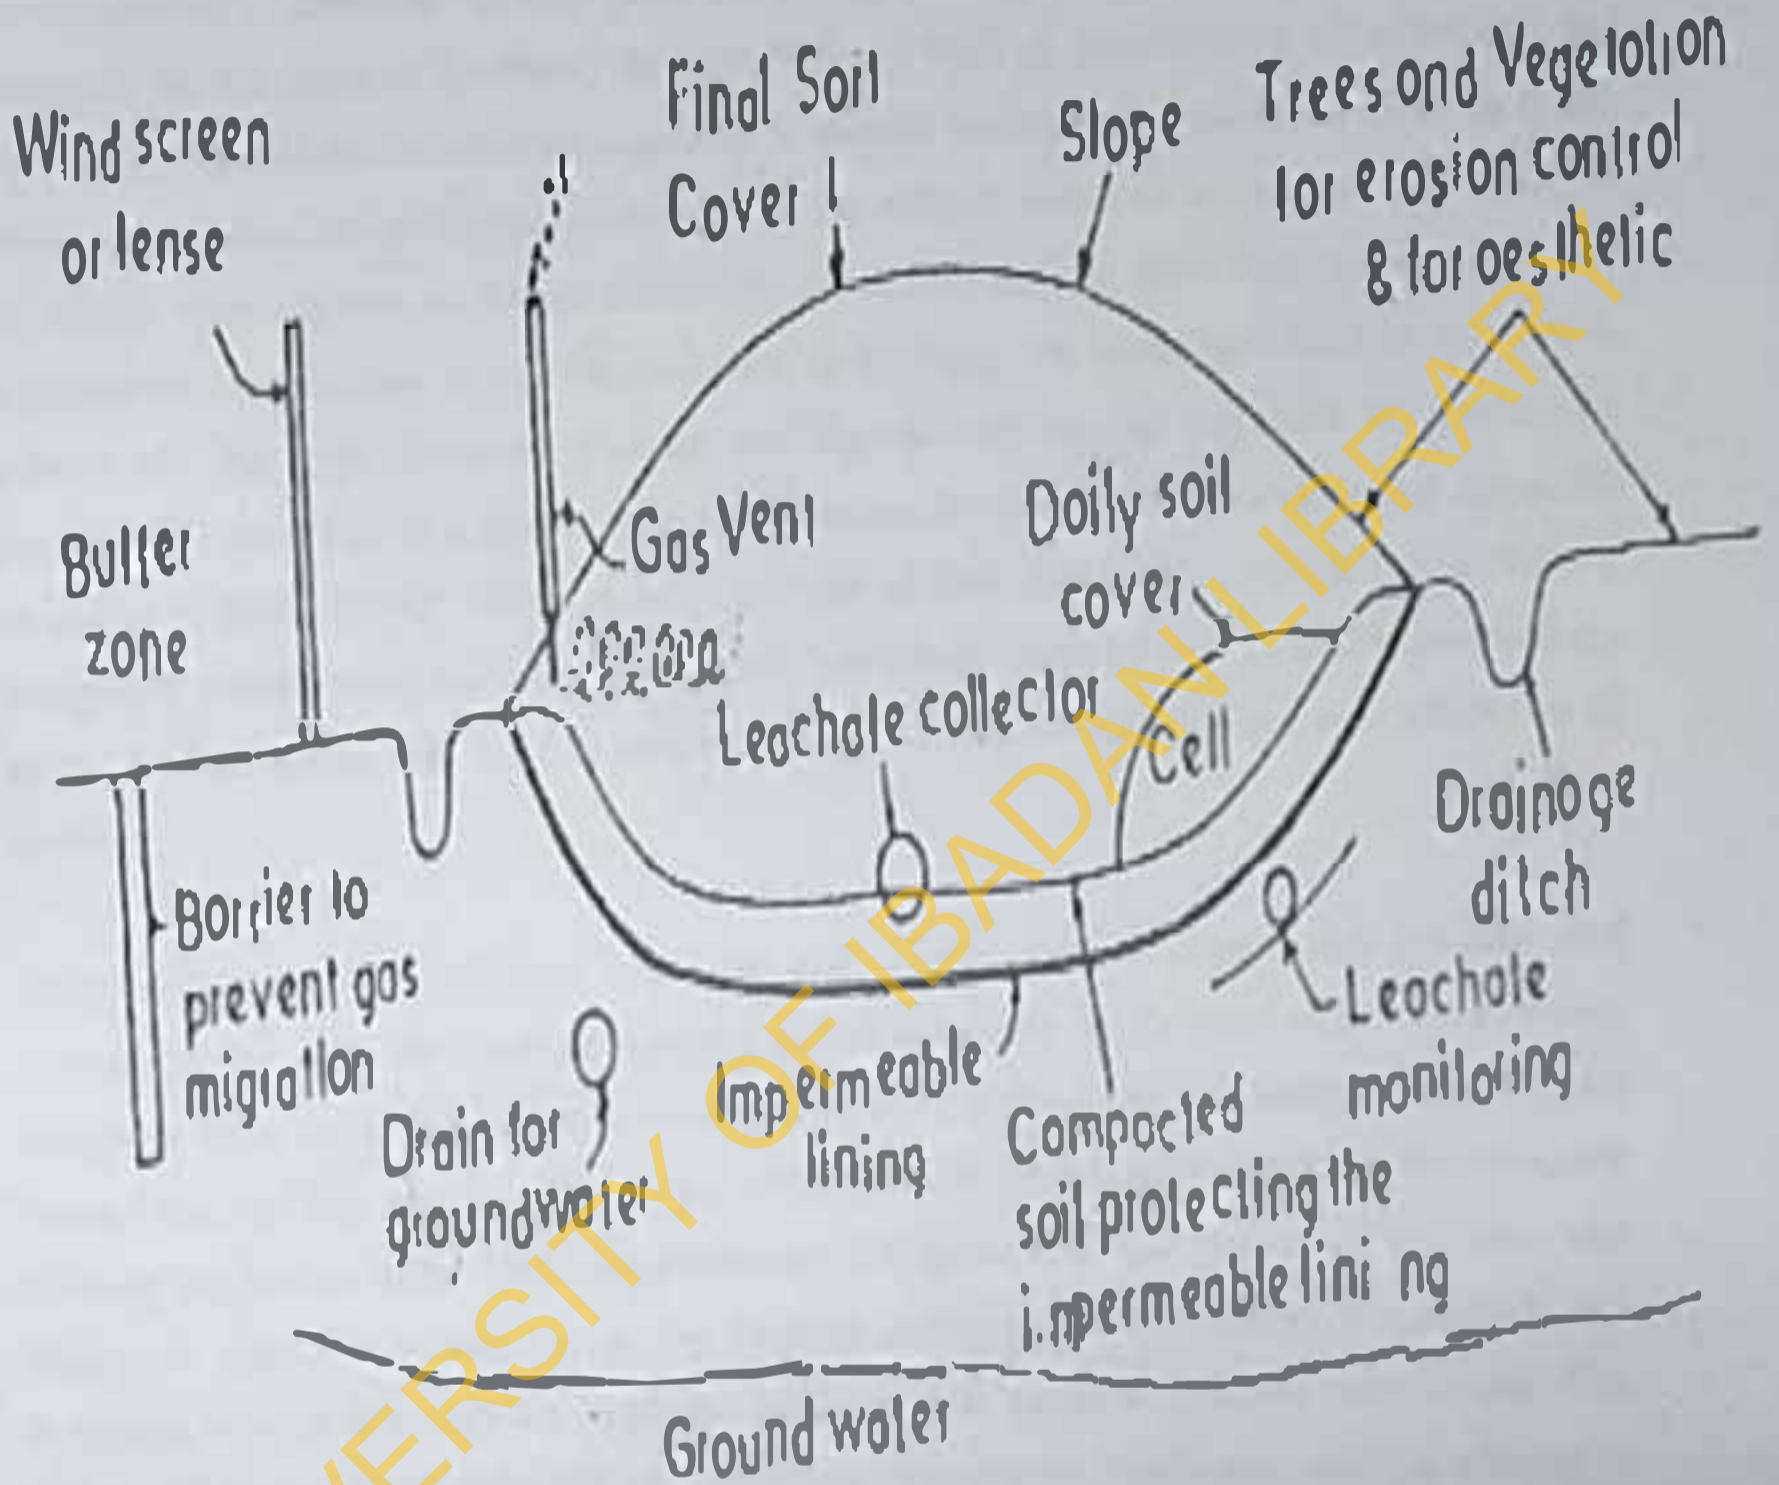 Wind screen
or lense
Final Soil
Cover
Slope
Trees and Vegetation
for erosion control
& for aesthetic
Buffer
zone
Gas Vent
Daily soil
cover
Leachate collector
Cell
Drainage
ditch
Barrier to
prevent gas
migration
Leachate
monitoring
Drain for
groundwater
Impermeable
lining
Compacted
soil protecting the
impermeable lining
Ground water
UNIVERSITY OF IBADAN LIBRARY